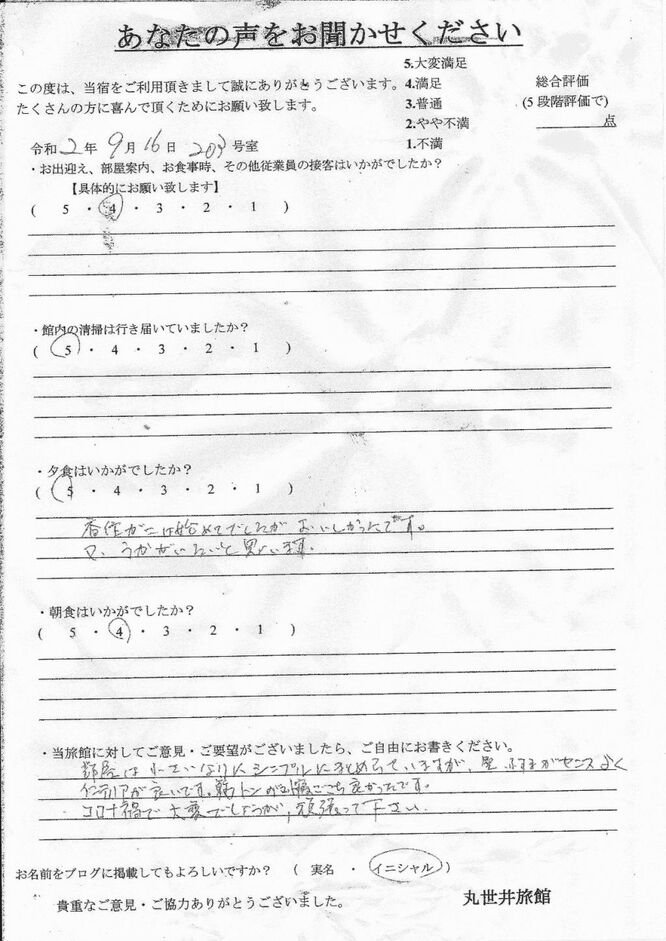 あなたの声をお聞かせください
この度は、当宿をご利用頂きまして誠にありがとうございます。
たくさんの方に喜んで頂くためにお願い致します。
5.大変満足
4.満足
3.普通
2.やや不満
1.不満
総合評価
(5段階評価で)
点
令和2年9月16日 203号室
・お出迎え、部屋案内、お食事時、その他従業員の接客はいかがでしたか?
【具体的にお願い致します】
( 5 ・ 4 ・ 3 ・ 2 ・ 1 )
・館内の清掃は行き届いていましたか?
( 5 ・ 4 ・ 3 ・ 2 ・ 1 )
・夕食はいかがでしたか?
( 5 ・ 4 ・ 3 ・ 2 ・ 1 )
香住がには始めてでしたがおいしかったです。
又、うかがいたいと思います。
・朝食はいかがでしたか?
( 5 ・ 4 ・ 3 ・ 2 ・ 1 )
・当旅館に対してご意見・ご要望がございましたら、ご自由にお書きください。
部屋は小さいなりにシンプルにまとめられていますが、ふすまがセンスよく
インテリアが良いです。寝ごこち良かったです。
コロナ禍で大変でしょうが、頑張って下さい。
お名前をブログに掲載してもよろしいですか? ( 実名 ・ イニシャル )
貴重なご意見・ご協力ありがとうございました。
丸世井旅館